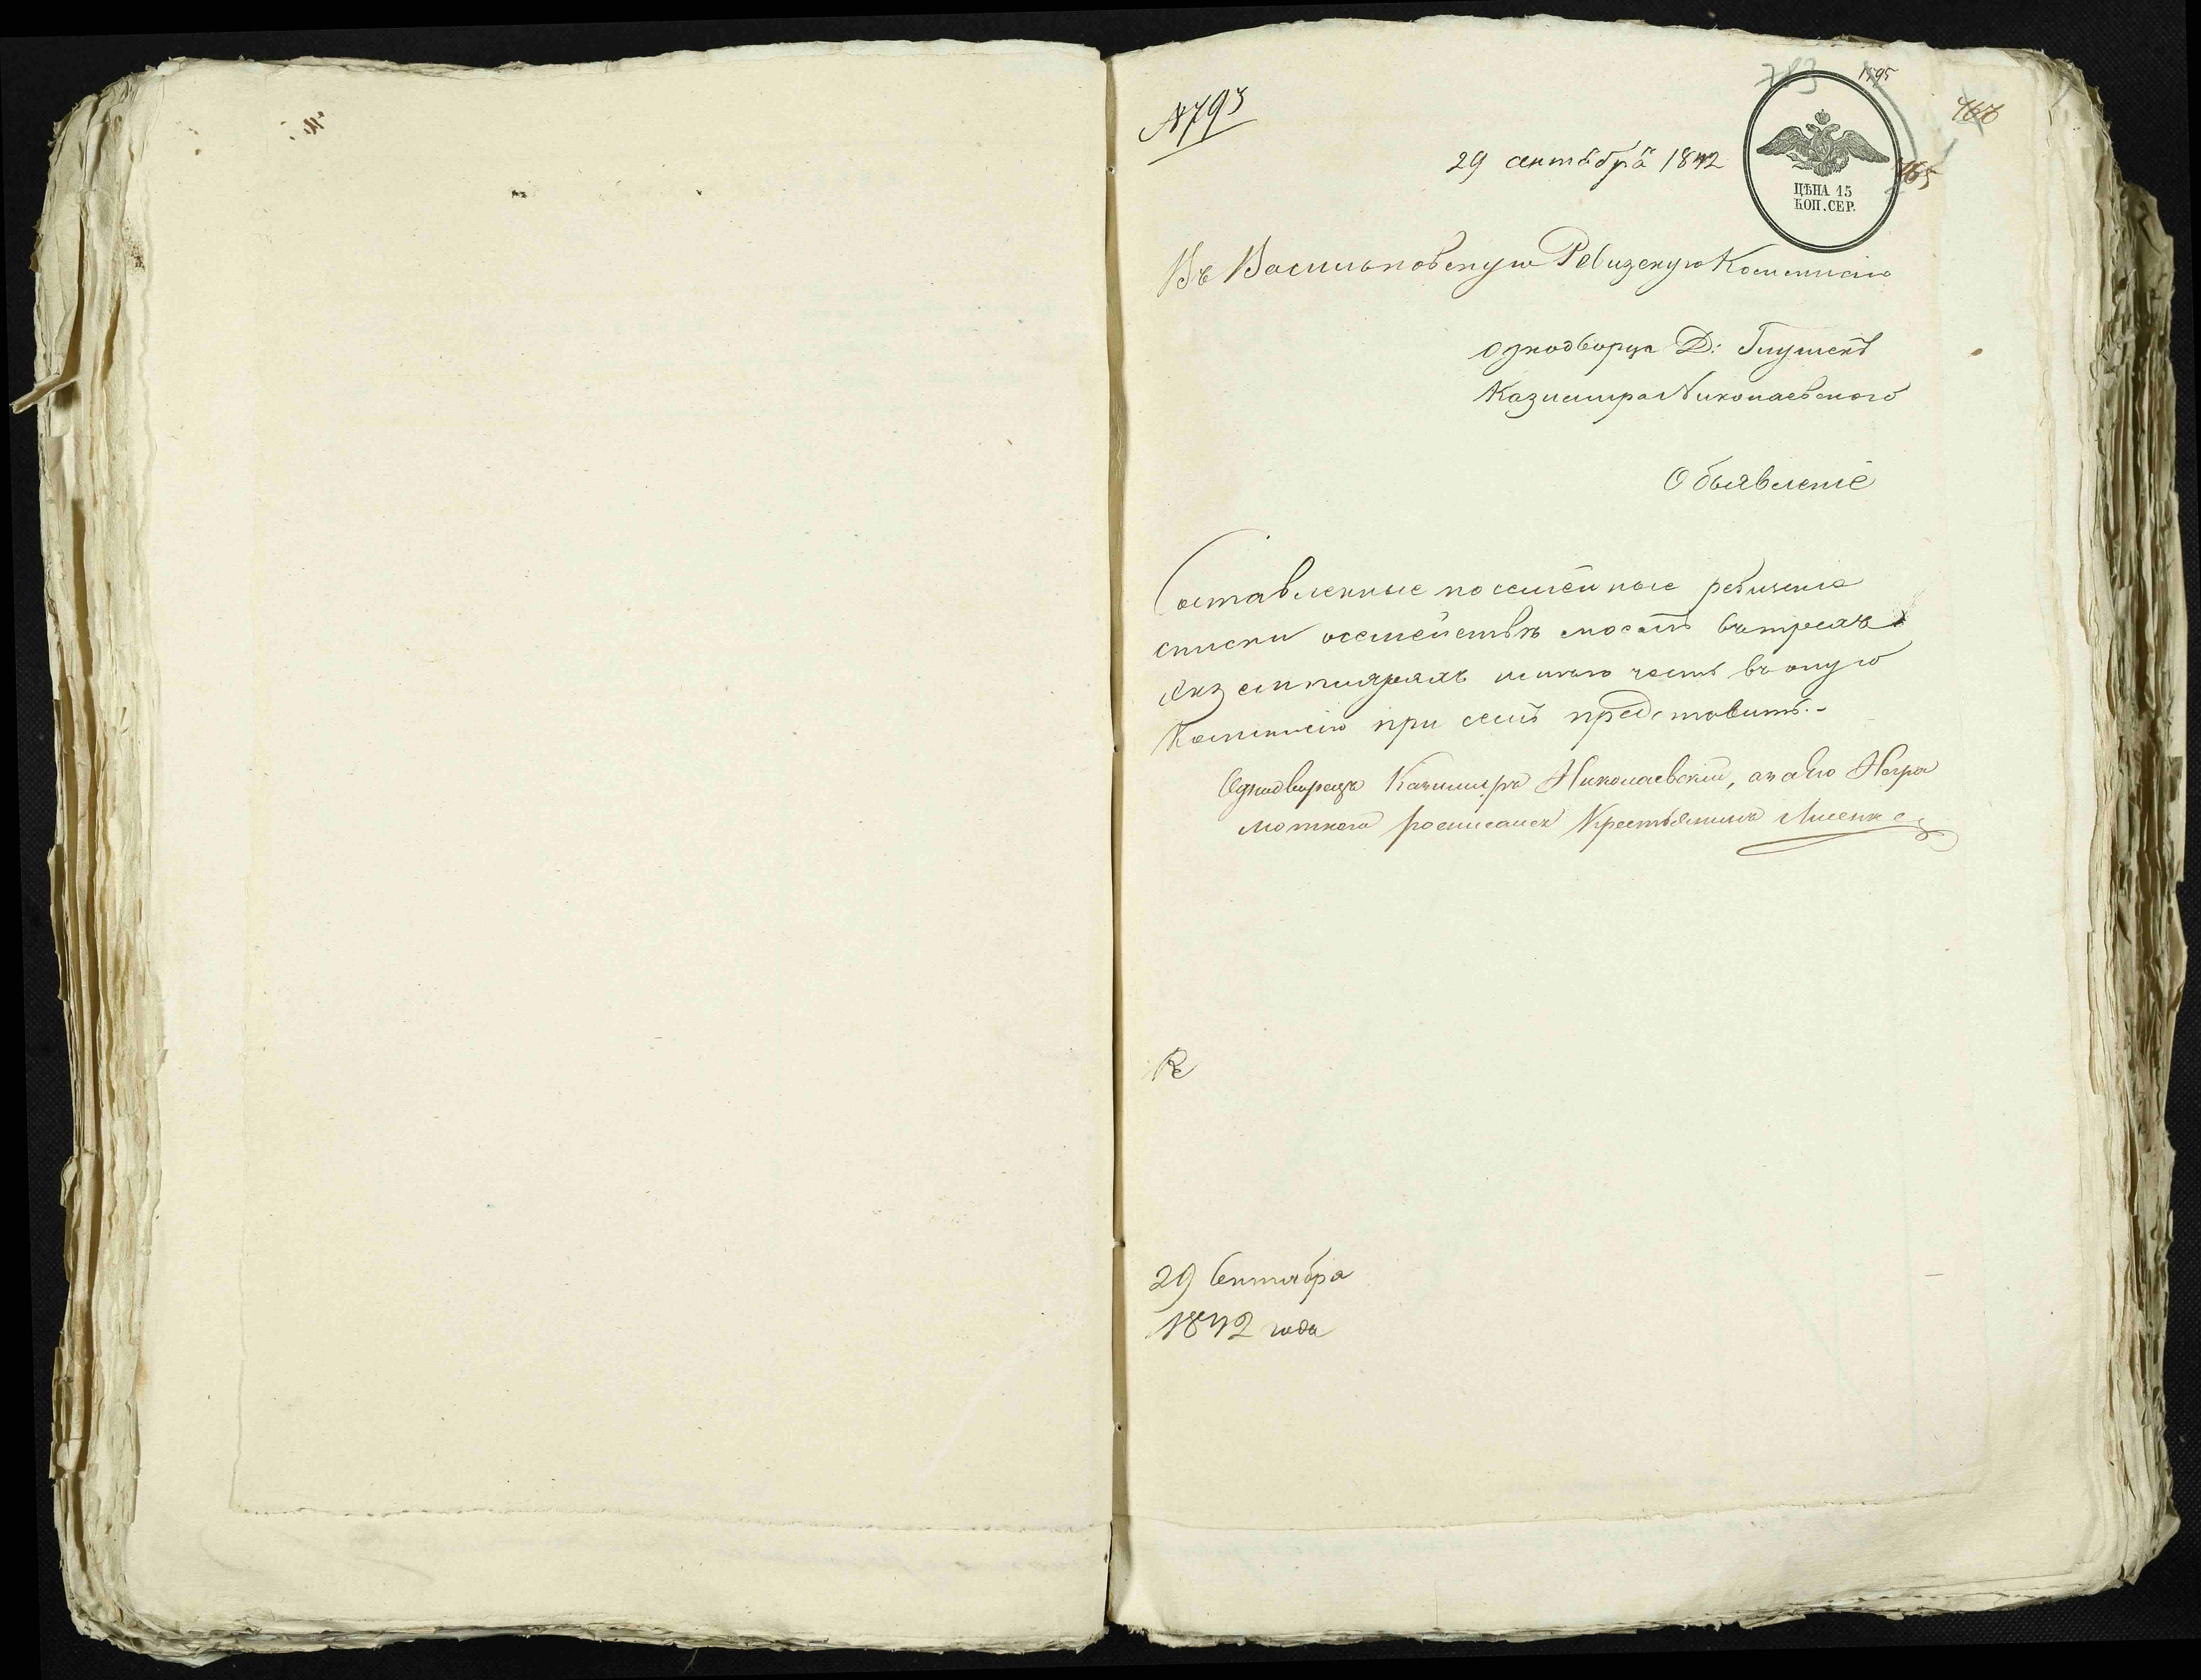 № 793
1595
766
765
29 сентября 1842
ЦѢНА 15
КОП. СЕР.
Въ Васильковскую Ревизскую Комисию
однодворца Д: Глушекъ
Казимира Николаевского
Обьявление
Составленные посемейные ревизские
списки осемействѣ моемъ вътрехъ
екземплярахъ имею честь въоную
Комисию при семъ представить.-
Однодворецъ Казимиръ Николаевский, аза его Негра
мотного росписался Крестьянинъ Лисенко
29 Сентября
1842 года